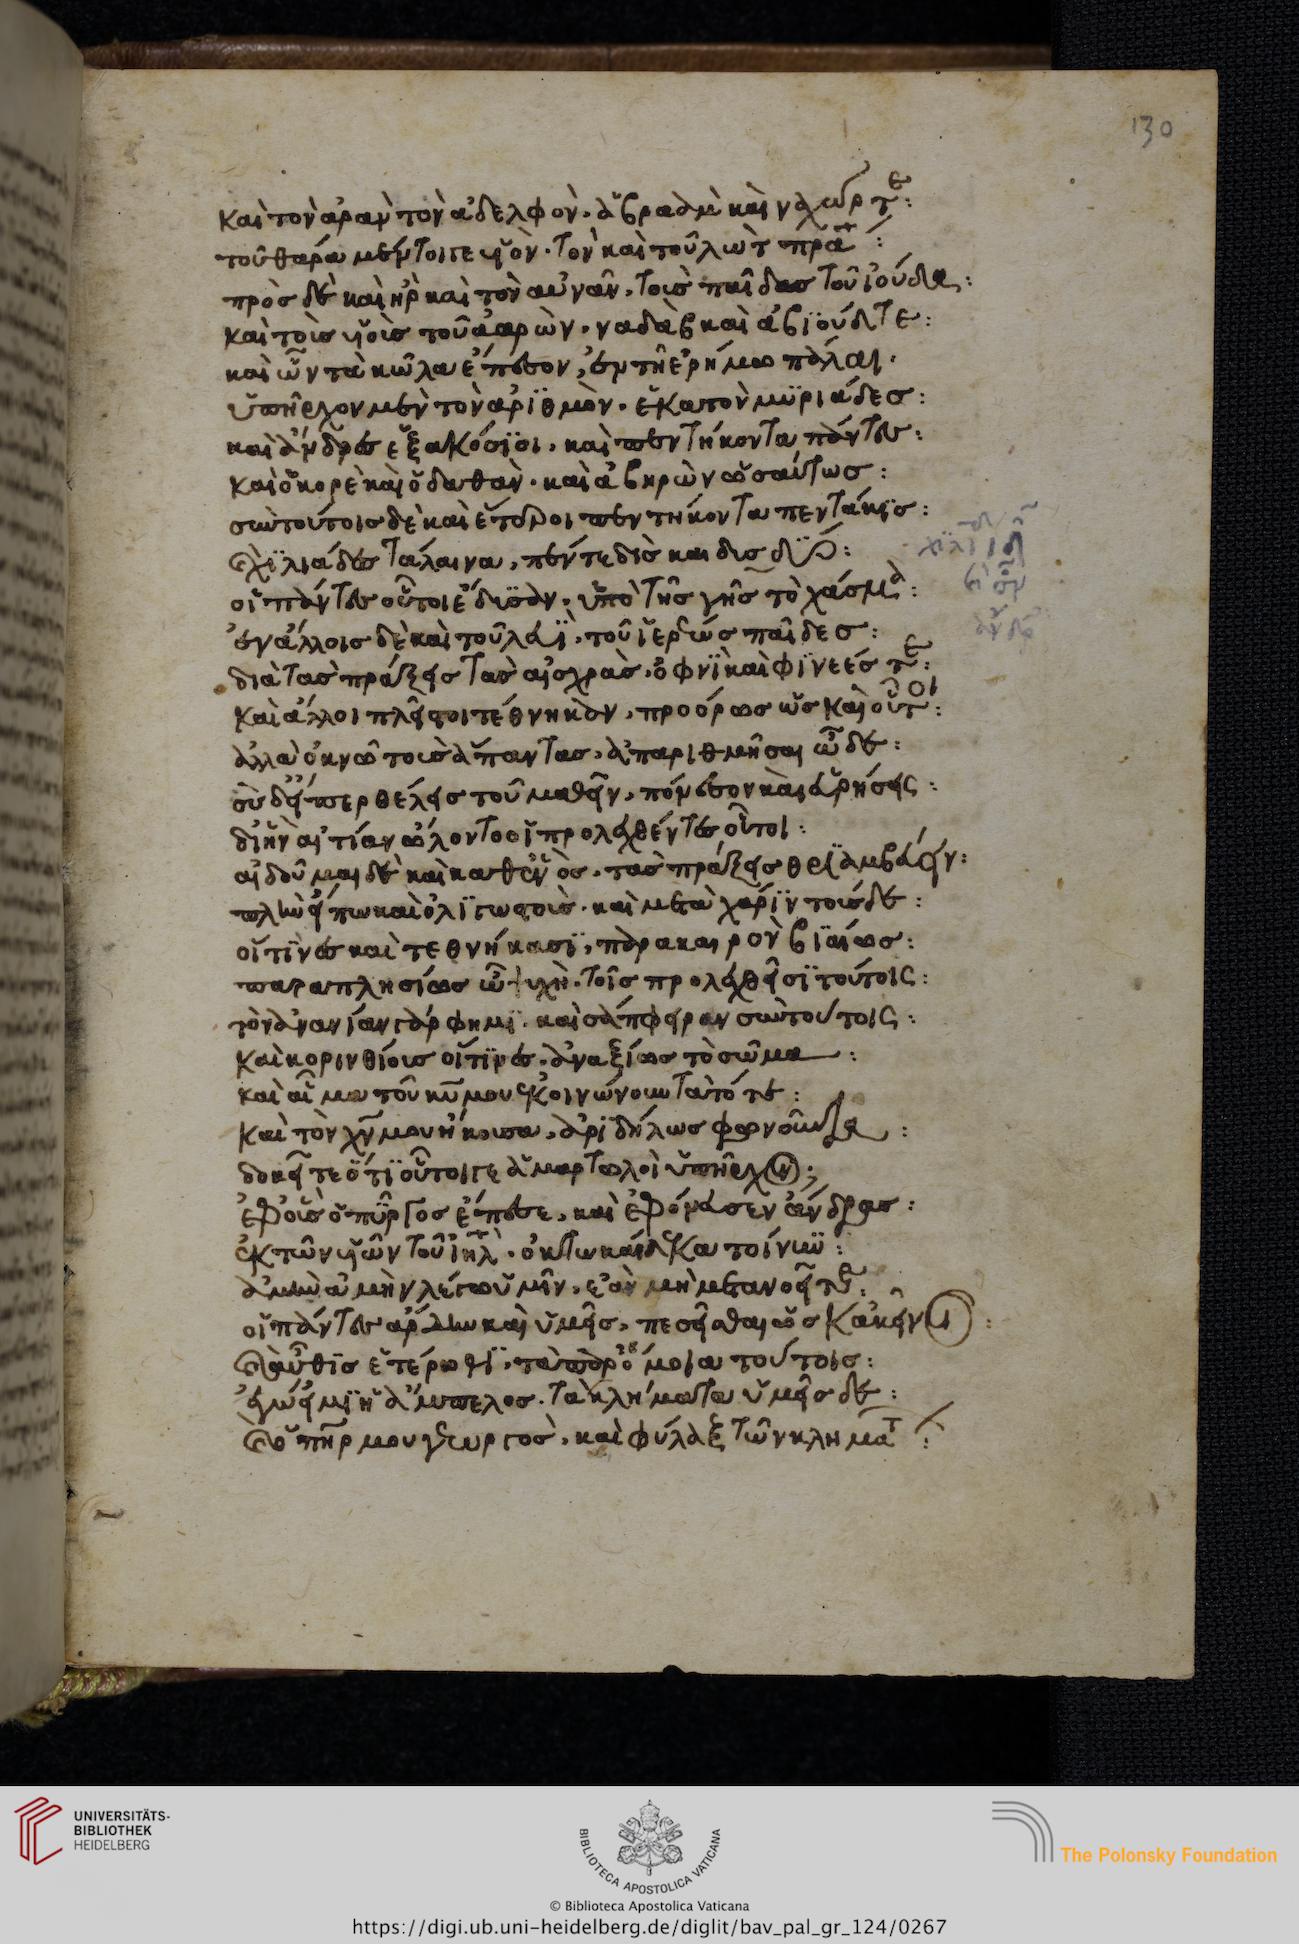 130
καὶ τὸν ἀρὰν τὸν ἀδελφὸν. ἀβραὰμ καὶ ναχώρ τε:
τοῦ θαρά μέντοιγε υἱὸν. τὸν καὶ τοῦ λὼτ πρα:
πρὸς δὲ καὶ ἢρ καὶ τὸν αὐνᾶν, τοὺς παῖδας τοῦ ἰούδα:
καὶ τοὺς υἱοὺς τοῦ ἀαρὼν. ναδὰβ καὶ ἀβϊούδ τε:
καὶ ὧν τὰ κῶλα ἔπεσον, ἐν τῆ ἐρήμω πάλαι.
ὑπῆρχον μὲν τὸν ἀρϊθμὸν. ἑκατὸν μϋριάδες:
καὶ ἄνδρες ἑξακόσϊοι, καὶ πεντήκοντα πάντες:
καὶ ὁ κορὲ καὶ ὁ δαθὰν. καὶ ἀβηρὼν ὡσαύτως:
σὺν τούτοις δὲ καὶ ἕτεροι πεντήκοντα πεντάκϊς:
χϊλιάδες τάλαινα, πέντε δὶς και δις
οἱ πάντες οὗτοι ἔδυσαν. ὑπὸ τῆς γῆς τὸ χάσμα:
ἐν ἄλλοις δὲ καὶ τοῦ λεΐ, τοῦ ἱερέως παῖδες:
διὰ τὰς πράξεις τὰς αἰσχρὰς. ὀφνὶ καὶ φϊνεές τε:
καὶ ἄλλοι πλεῖστοι τέθνηκαν, προώρως ὡς καὶ οὗτοι:
ἀλλὰ ὀκνῶ τοὺς ἅπαντας, ἀπαριθμῆσαι ὧδε:
σὺ δ' εἴπερ θέλεις τοῦ μαθεῖν, πόνεσον καὶ εὑρήσεις:
δι' ἣν αἰτίαν ὤλοντο οἱ προλεχθέντες οὗτοι:
αἰδοῦμαι δὲ καὶ καθενὸς. τὰς πράξεις θρϊαμβεύειν:
πλὴν εἴπω καὶ ὀλϊγωστοὺς. καὶ μετὰ χάρϊν τούσδε:
οἵτϊνες καὶ τεθνήκασϊ, παρακαιρὸν βϊαίως:
παραπλησίως ὦ ψυχὴ. τοῖς προλεχθεῖσϊ τούτοις:
τὸν ἀνανίαν γάρ φημϊ. καὶ σάπφειραν σὺν τούτοις:
καὶ κορινθίους οἵτϊνες. ἀναξίως τὸ σῶμα:
καὶ αἷμα τοῦ κυ μου ἐκοινώνουν τὰ τότε:
καὶ τὸν χν μου ἤκουσα, ἀρϊδήλως φωνοῦντα:
δοκεῖτε ὅτϊ οὗτοιγε ἁμαρτωλοὶ ὑπῆρχον;
ἐφ' οὓς ὁ πῦργος ἔπεσε, καὶ ἐφόνευσεν ἄνδρας:
ἐκ τῶν υἱῶν τοῦ ιηλ. ὀκτωκαίδεκα τοίνυν:
ἀμὴν ἀμὴν λέγω ὑμῖν. ἐὰν μὴ μετανοεῖτε:
οἱ πάντες ἄρδην καὶ ὑμεῖς, πεσεῖσθαι ὡς κἀκεῖνοι:
αὖθϊς ἑτέρωθϊ, τὰ παρόμοια τούτοις:
ἐγώ εἰμϊ ἡ ἄμπελος. τὰ κλήματα ὑμεῖς δὲ:
ὁ πηρ μου γεωργὸς, καὶ φύλαξ τῶν κλημάτ:
UNIVERSITÄTS-
BIBLIOTHEK
HEIDELBERG
BIBLIOTECA APOSTOLICA VATICANA
The Polonsky Foundation
© Biblioteca Apostolica Vaticana
https://digi.ub.uni-heidelberg.de/diglit/bav_pal_gr_124/0267